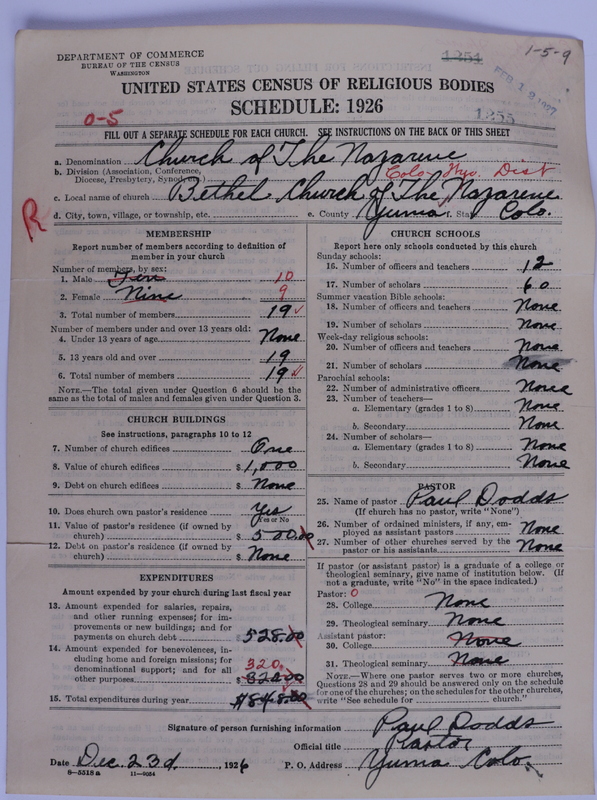 DEPARTMENT OF COMMERCE
BUREAU OF THE CENSUS
WASHINGTON
1254
1-5-9
FEB 12 1927
UNITED STATES CENSUS OF RELIGIOUS BODIES
SCHEDULE: 1926
0-5
1255
FILL OUT A SEPARATE SCHEDULE FOR EACH CHURCH. SEE INSTRUCTIONS ON THE BACK OF THIS SHEET
a. Denomination Church of The Nazarene
b. Division (Association, Conference, Diocese, Presbytery, Synod, etc.) Colo-Wyo. Dist
c. Local name of church Bethel Church of The Nazarene
d. City, town, village, or township, etc. e. County Yuma f. State Colo.
R
MEMBERSHIP
Report number of members according to definition of
member in your church
Number of members, by sex:
1. Male Ten 10
2. Female Nine 9
3. Total number of members 19
Number of members under and over 13 years old:
4. Under 13 years of age None
5. 13 years old and over 19
6. Total number of members 19
NOTE.—The total given under Question 6 should be
same as the total of males and females given under Question 3.
CHURCH BUILDINGS
See instructions, paragraphs 10 to 12
7. Number of church edifices One
8. Value of church edifices $1,000
9. Debt on church edifices $ None
10. Does church own pastor's residence? Yes
(Yes or No)
11. Value of pastor's residence (if owned by
church) $ 500.00
12. Debt on pastor's residence (if owned by
church) $ None
EXPENDITURES
Amount expended by your church during last fiscal year
13. Amount expended for salaries, repairs,
and other running expenses; for im-
provements or new buildings; and for
payments on church debt $528.00
14. Amount expended for benevolences, in-
cluding home and foreign missions; for
denominational support; and for all
other purposes 320.
15. Total expenditures during year $848.00
CHURCH SCHOOLS
Report here only schools conducted by this church
Sunday schools:
16. Number of officers and teachers 12
17. Number of scholars 60
Summer vacation Bible schools:
18. Number of officers and teachers None
19. Number of scholars None
Week-day religious schools:
20. Number of officers and teachers None
21. Number of scholars None
Parochial schools:
22. Number of administrative officers None
23. Number of teachers—
a. Elementary (grades 1 to 8) None
b. Secondary None
24. Number of scholars—
a. Elementary (grades 1 to 8) None
b. Secondary None
PASTOR
25. Name of pastor Paul Dodds
(If church has no pastor, write "None")
26. Number of ordained ministers, if any, em-
ployed as assistant pastors None
27. Number of other churches served by the
pastor or his assistants None
If pastor (or assistant pastor) is a graduate of a college or
theological seminary, give name of institution below. (If
not a graduate, write "No" in the space indicated.)
Pastor: 0
28. College None
29. Theological seminary None
Assistant pastor:
30. College None
31. Theological seminary None
NOTE.—Where one pastor serves two or more churches,
Questions 28 and 29 should be answered only on the schedule
for one of the churches; on the schedules for the other churches,
write "See schedule for church."
Signature of person furnishing information Paul Dodds
Official title Pastor
Date Dec. 23d, 1926 P. O. Address Yuma Colo.
8-5518a 11-9054